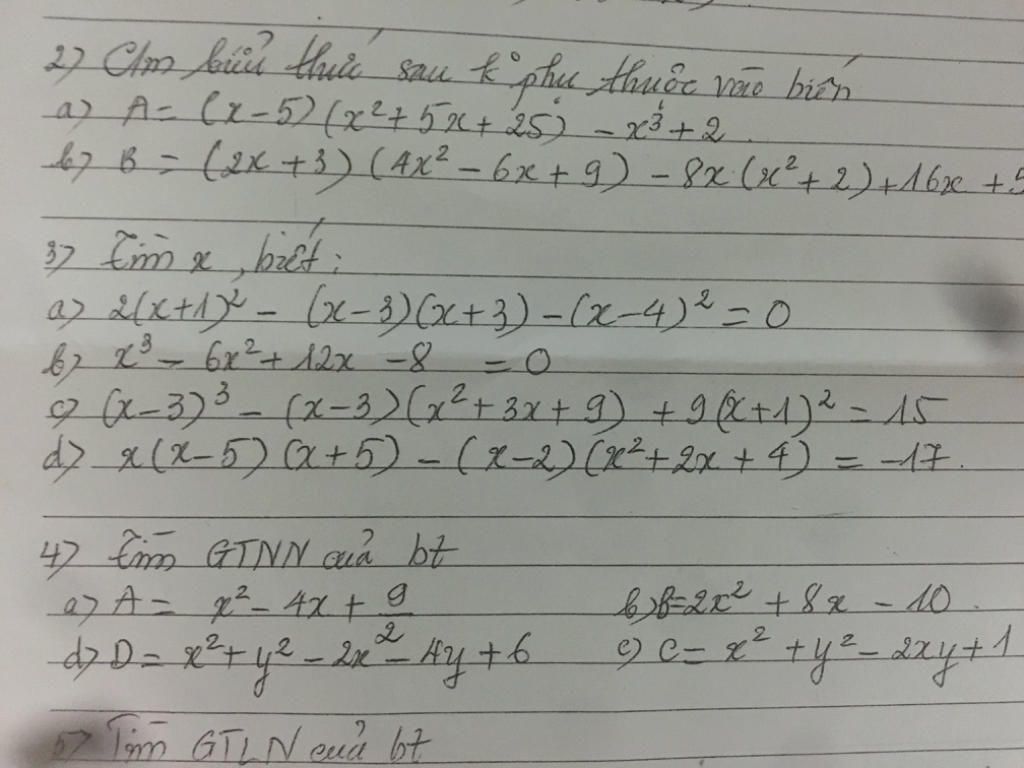 2) Cm biểu thức sau k° phụ thuộc vào biến
a) A = (x-5)(x²+5x+25) - x³+2
b) B = (2x+3)(4x²-6x+9) - 8x(x²+2)+16x+5
3) Tìm x, biết:
a) 2(x+1)² - (x-3)(x+3) - (x-4)² = 0
b) x³ - 6x² + 12x - 8 = 0
c) (x-3)³ - (x-3)(x²+3x+9) + 9(x+1)² = 15
d) x(x-5)(x+5) - (x-2)(x²+2x+4) = -17.
4) Tìm GTNN của bt
a) A = x² - 4x + 9/2 b) B=2x² + 8x - 10.
d) D = x²+y²-2x-4y+6 c) C = x²+y²-2xy+1
5) Tìm GTLN của bt